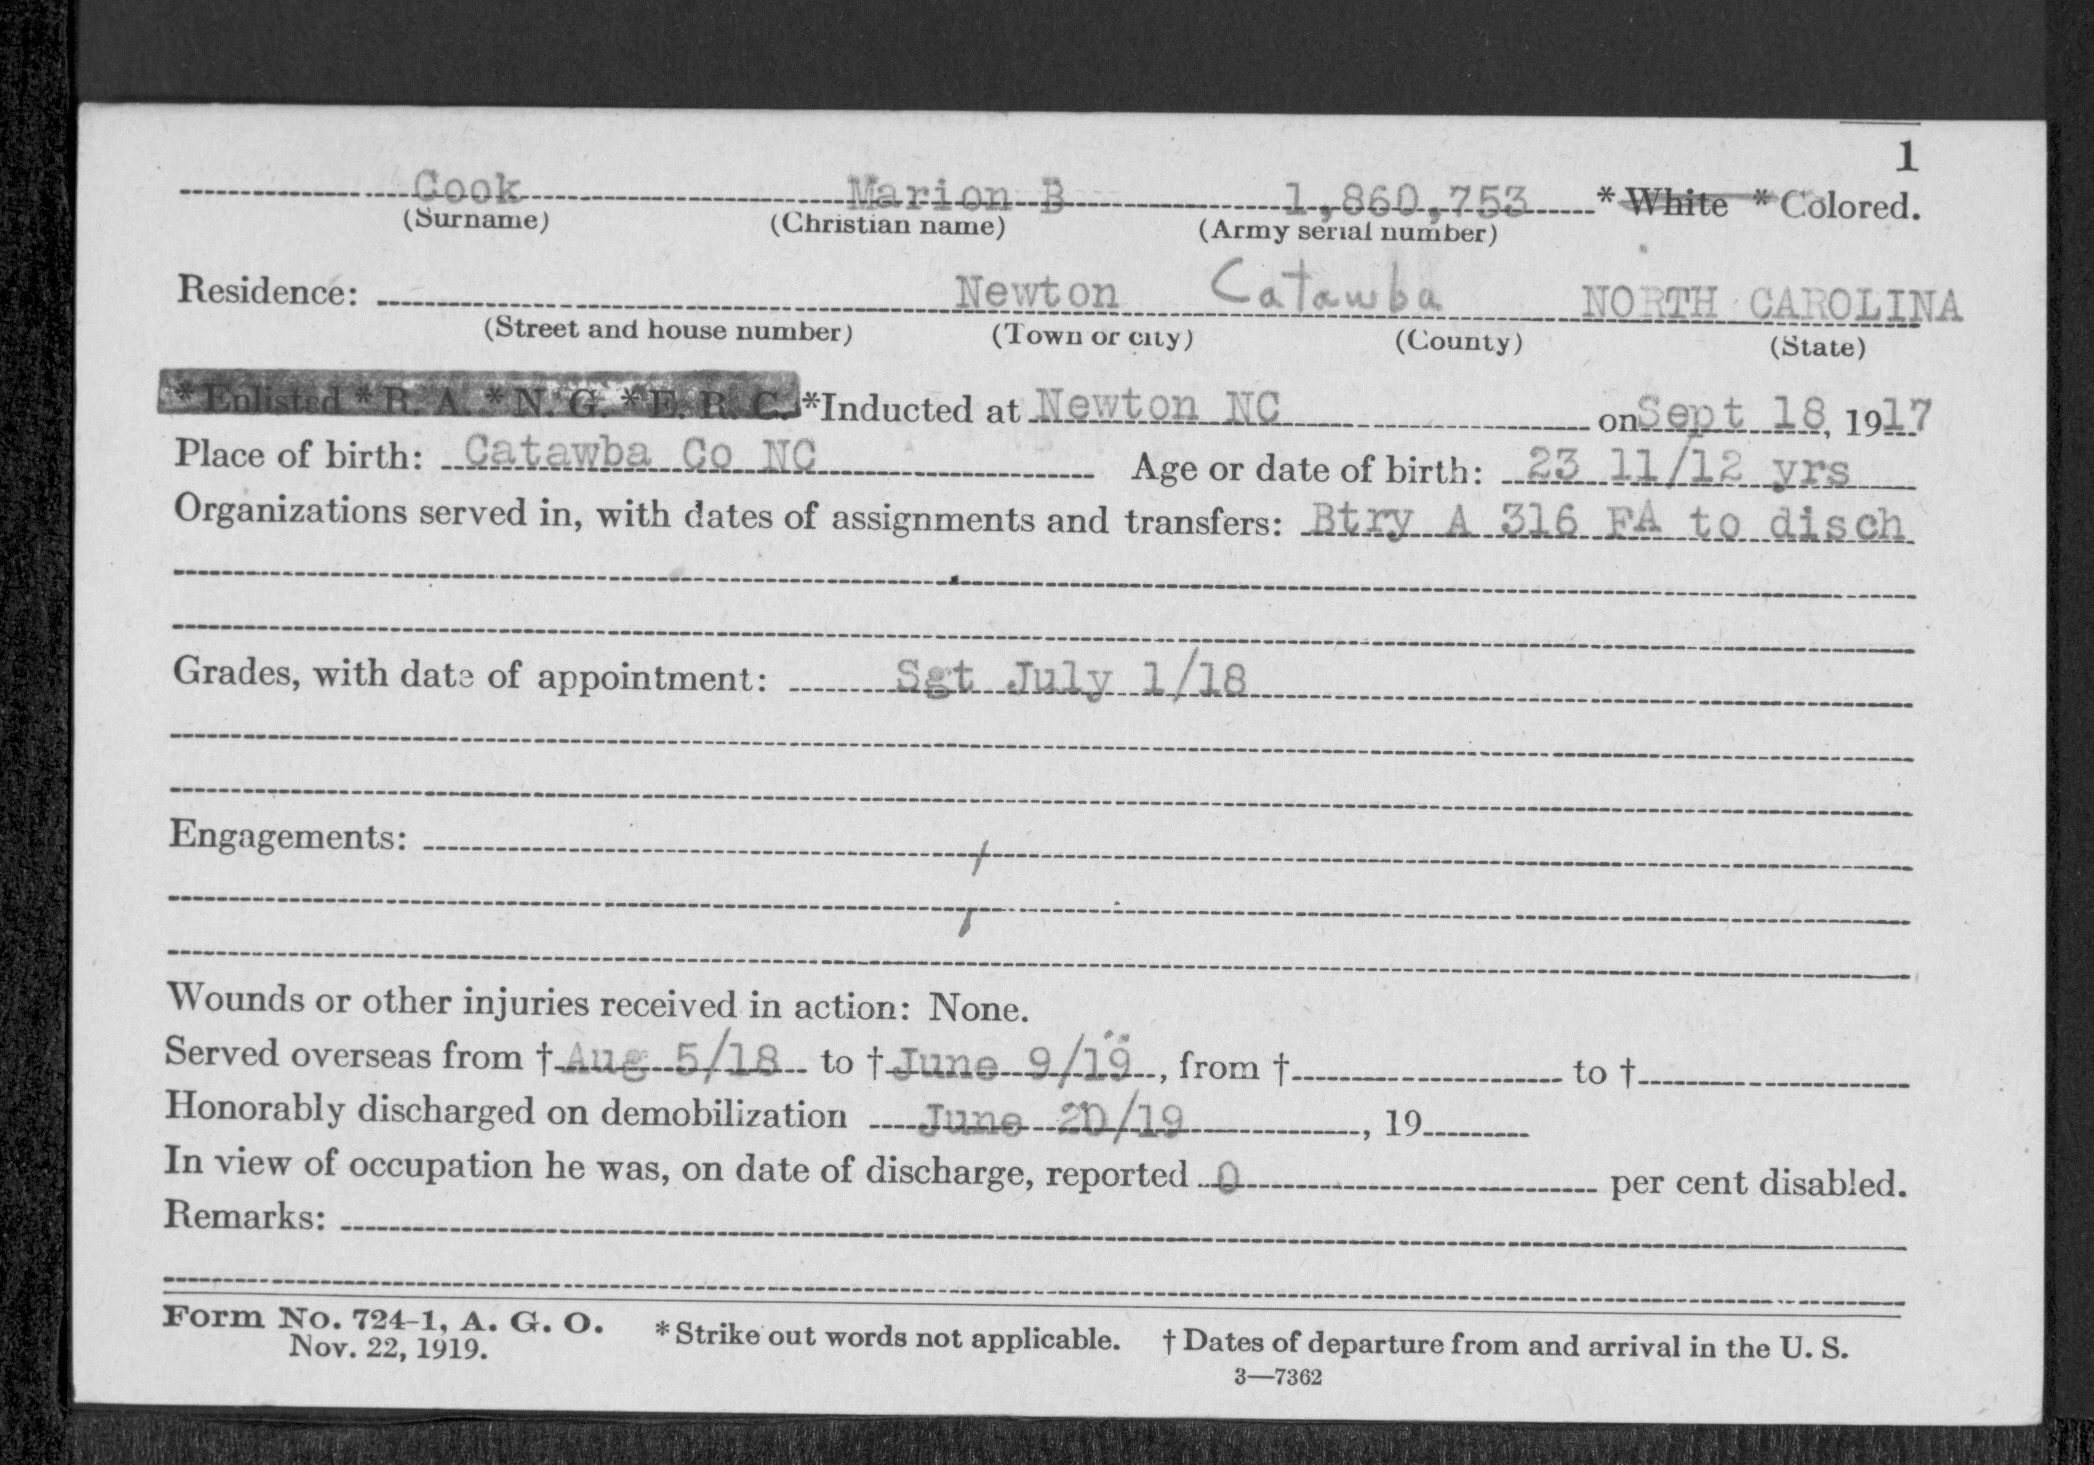 1
Cook Marion B 1,860,753 * White * Colored.
(Surname) (Christian name) (Army serial number)
Residence: Newton Catawba NORTH CAROLINA
(Street and house number) (Town or city) (County) (State)
* Enlisted * R. A. * N. G. * E. R. C. *Inducted at Newton NC on Sept 18, 1917
Place of birth: Catawba Co NC Age or date of birth: 23 11/12 yrs
Organizations served in, with dates of assignments and transfers: Btry A 316 FA to disch
Grades, with date of appointment: Sgt July 1/18
Engagements:
Wounds or other injuries received in action: None.
Served overseas from † Aug 5/18 to † June 9/19, from † to †
Honorably discharged on demobilization June 20/19, 19
In view of occupation he was, on date of discharge, reported 0 per cent disabled.
Remarks:
Form No. 724-1, A. G. O. * Strike out words not applicable. † Dates of departure from and arrival in the U. S.
Nov. 22, 1919.
3—7362